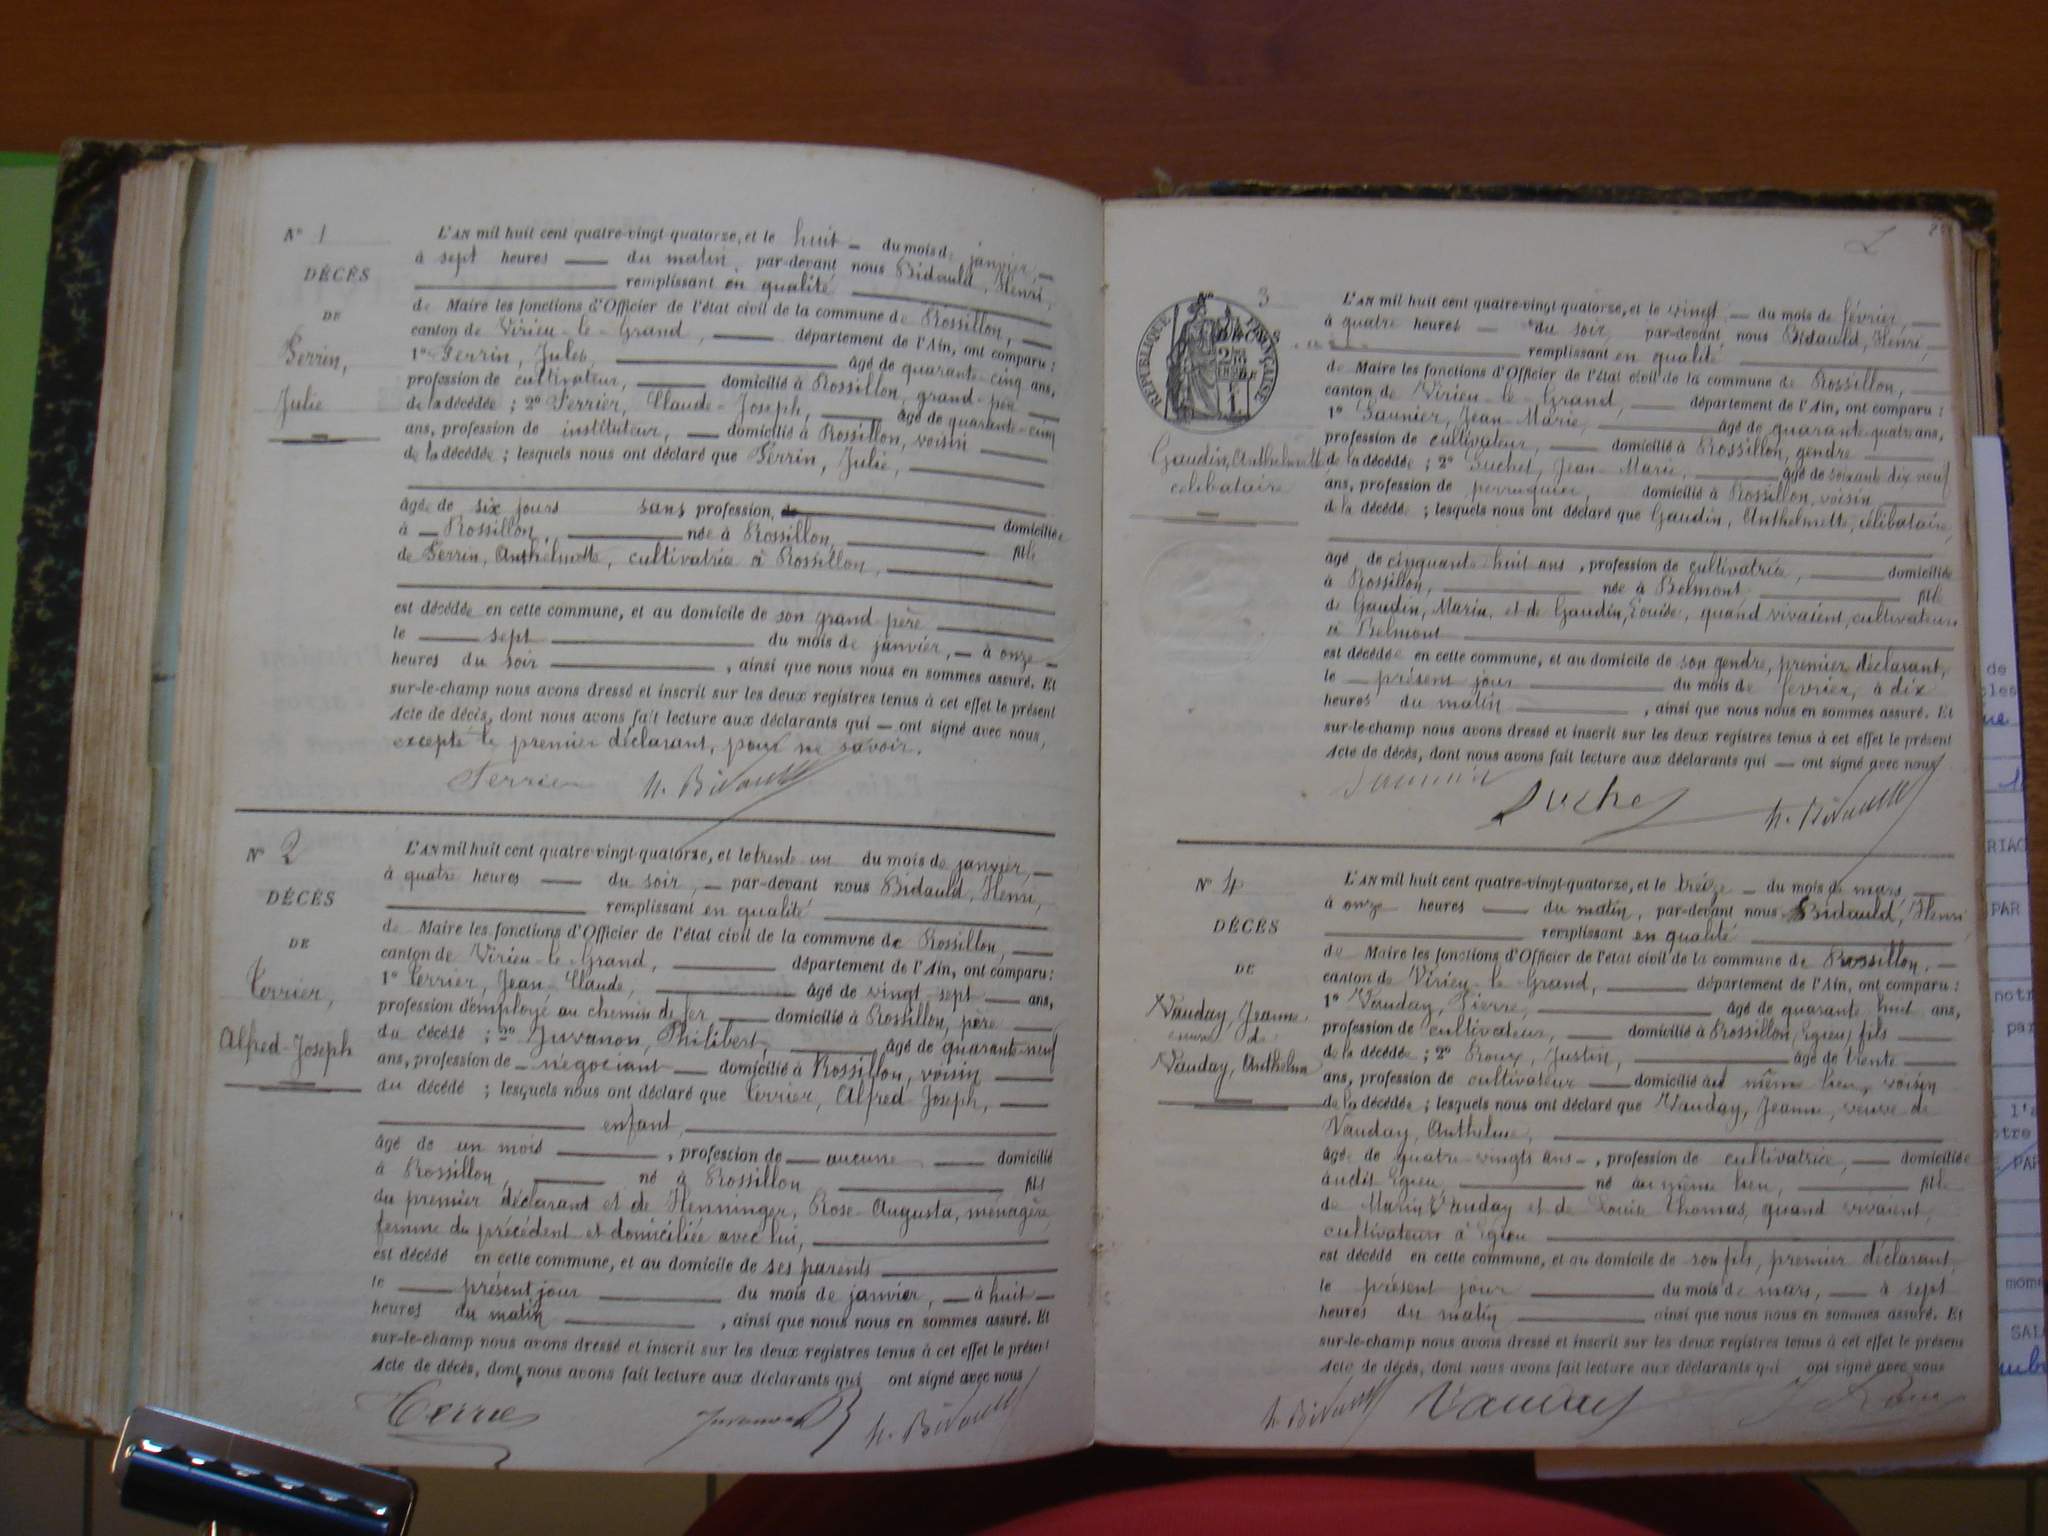 N° 1
DÉCÈS
DE
Perrin,
Julie
L'AN mil huit cent quatre-vingt-quatorze, et le huit du mois de janvier,
à sept heures du matin, par-devant nous Bidauld, Henri,
remplissant en qualité
de Maire les fonctions d'Officier de l'état civil de la commune de Rossillon,
canton de Virieu-le-Grand, département de l'Ain, ont comparu :
1° Perrin, Jules, âgé de quarante-cinq ans,
profession de cultivateur, domicilié à Rossillon, grand-père
de la décédée ; 2° Perrier, Claude-Joseph, âgé de quarante-cinq
ans, profession de instituteur, domicilié à Rossillon, voisin
de la décédée ; lesquels nous ont déclaré que Perrin, Julie,
âgée de six jours sans profession, domiciliée
à Rossillon, née à Rossillon, fille
de Perrin, Anthelmette, cultivatrice à Rossillon,
est décédée en cette commune, et au domicile de son grand-père
le sept du mois de janvier, à onze
heures du soir , ainsi que nous nous en sommes assuré. Et
sur-le-champ nous avons dressé et inscrit sur les deux registres tenus à cet effet le présent
Acte de décès, dont nous avons fait lecture aux déclarants qui ont signé avec nous,
excepté le premier déclarant, pour ne savoir.
Perrier H. Bidauld
N° 2
DÉCÈS
DE
Terrier,
Alfred-Joseph
L'AN mil huit cent quatre-vingt-quatorze, et le trente un du mois de janvier,
à quatre heures du soir, par-devant nous Bidauld, Henri,
remplissant en qualité
de Maire les fonctions d'Officier de l'état civil de la commune de Rossillon,
canton de Virieu-le-Grand, département de l'Ain, ont comparu :
1° Terrier, Jean-Claude, âgé de vingt-sept ans,
profession d'employé au chemin de fer domicilié à Rossillon, père
du décédé ; 2° Juvanon, Philibert, âgé de quarante-neuf
ans, profession de négociant domicilié à Rossillon, voisin
du décédé ; lesquels nous ont déclaré que Terrier, Alfred-Joseph,
enfant,
âgé de un mois , profession de aucune domicilié
à Rossillon, né à Rossillon fils
du premier déclarant et de Henninger, Rose-Augusta, ménagère,
femme du précédent et domiciliée avec lui,
est décédé en cette commune, et au domicile de ses parents
le présent jour du mois de janvier, à huit
heures du matin , ainsi que nous nous en sommes assuré. Et
sur-le-champ nous avons dressé et inscrit sur les deux registres tenus à cet effet le présent
Acte de décès, dont nous avons fait lecture aux déclarants qui ont signé avec nous
Terrier Juvanon H. Bidauld
2
3
RÉPUBLIQUE FRANÇAISE
Gaudin, Anthelmette
célibataire
L'AN mil huit cent quatre-vingt-quatorze, et le vingt du mois de février,
à quatre heures du soir, par-devant nous Bidauld, Henri,
remplissant en qualité
de Maire les fonctions d'Officier de l'état civil de la commune de Rossillon,
canton de Virieu-le-Grand, département de l'Ain, ont comparu :
1° Saunier, Jean-Marie, âgé de quarante-quatre ans,
profession de cultivateur, domicilié à Rossillon, gendre
de la décédée ; 2° Suchet, Jean-Marie, âgé de soixante dix neuf
ans, profession de perruquier, domicilié à Rossillon, voisin
de la décédé ; lesquels nous ont déclaré que Gaudin, Anthelmette, célibataire,
âgé de cinquante-huit ans , profession de cultivatrice, domiciliée
à Rossillon, née à Belmont fille
de Gaudin, Marin, et de Gaudin, Louise, quand vivaient, cultivateurs
à Belmont
est décédée en cette commune, et au domicile de son gendre, premier déclarant,
le présent jour du mois de février, à dix
heures du matin , ainsi que nous nous en sommes assuré. Et
sur-le-champ nous avons dressé et inscrit sur les deux registres tenus à cet effet le présent
Acte de décès, dont nous avons fait lecture aux déclarants qui ont signé avec nous
Saunier Suchet H. Bidauld
N° 4
DÉCÈS
DE
Vauday, Jeanne
veuve de
Vauday, Anthelme
L'AN mil huit cent quatre-vingt-quatorze, et le treize du mois de mars,
à onze heures du matin, par-devant nous Bidauld, Henri
remplissant en qualité
de Maire les fonctions d'Officier de l'état civil de la commune de Rossillon,
canton de Virieu-le-Grand, département de l'Ain, ont comparu :
1° Vauday, Pierre, âgé de quarante huit ans,
profession de cultivateur, domicilié à Rossillon, Egieu, fils
de la décédée ; 2° Roux, Justin, âgé de trente
ans, profession de cultivateur domicilié au même lieu, voisin
de la décédée ; lesquels nous ont déclaré que Vauday, Jeanne, veuve de
Vauday, Anthelme,
âgée de quatre-vingts ans , profession de cultivatrice, domiciliée
audit Egieu, né au même lieu, fille
de Marin Vauday et de Louise Thomas, quand vivaient,
cultivateurs à Egieu
est décédé en cette commune, et au domicile de son fils, premier déclarant,
le présent jour du mois de mars, à sept
heures du matin ainsi que nous nous en sommes assuré. Et
sur-le-champ nous avons dressé et inscrit sur les deux registres tenus à cet effet le présent
Acte de décès, dont nous avons fait lecture aux déclarants qui ont signé avec nous
H. Bidauld Vauday J Roux